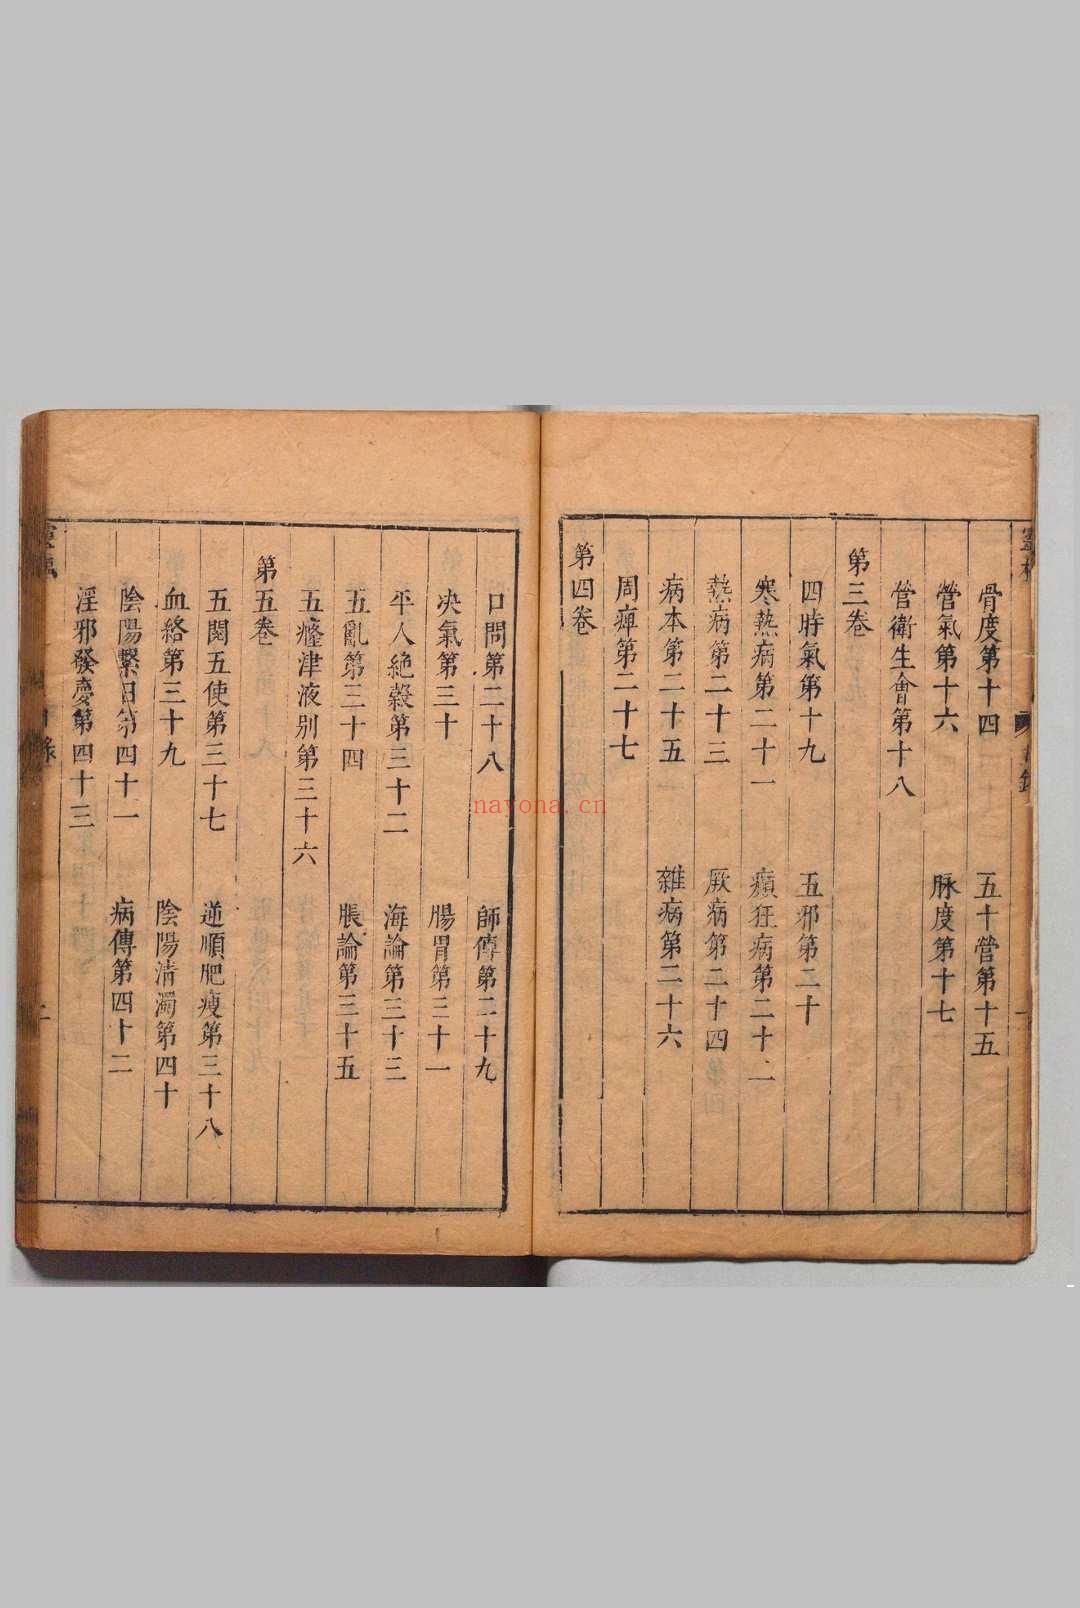 骨度第十四 五十營第十五
營氣第十六 脉度第十七
營衛生會第十八
第三卷
四時氣第十九 五邪第二十
寒熱病第二十一 癲狂病第二十二
熱病第二十三 厥病第二十四
病本第二十五 雜病第二十六
周痺第二十七
第四卷
口問第二十八 師傳第二十九
决氣第三十 腸胃第三十一
平人絶榖第三十二 海論第三十三
五亂第三十四 脹論第三十五
五癃津液别第三十六
第五卷
五閱五使第三十七 逆順肥瘦第三十八
血絡第三十九 陰陽清濁第四十
陰陽繫日第四十一 病傳第四十二
淫邪發夢第四十三
nayona.cn